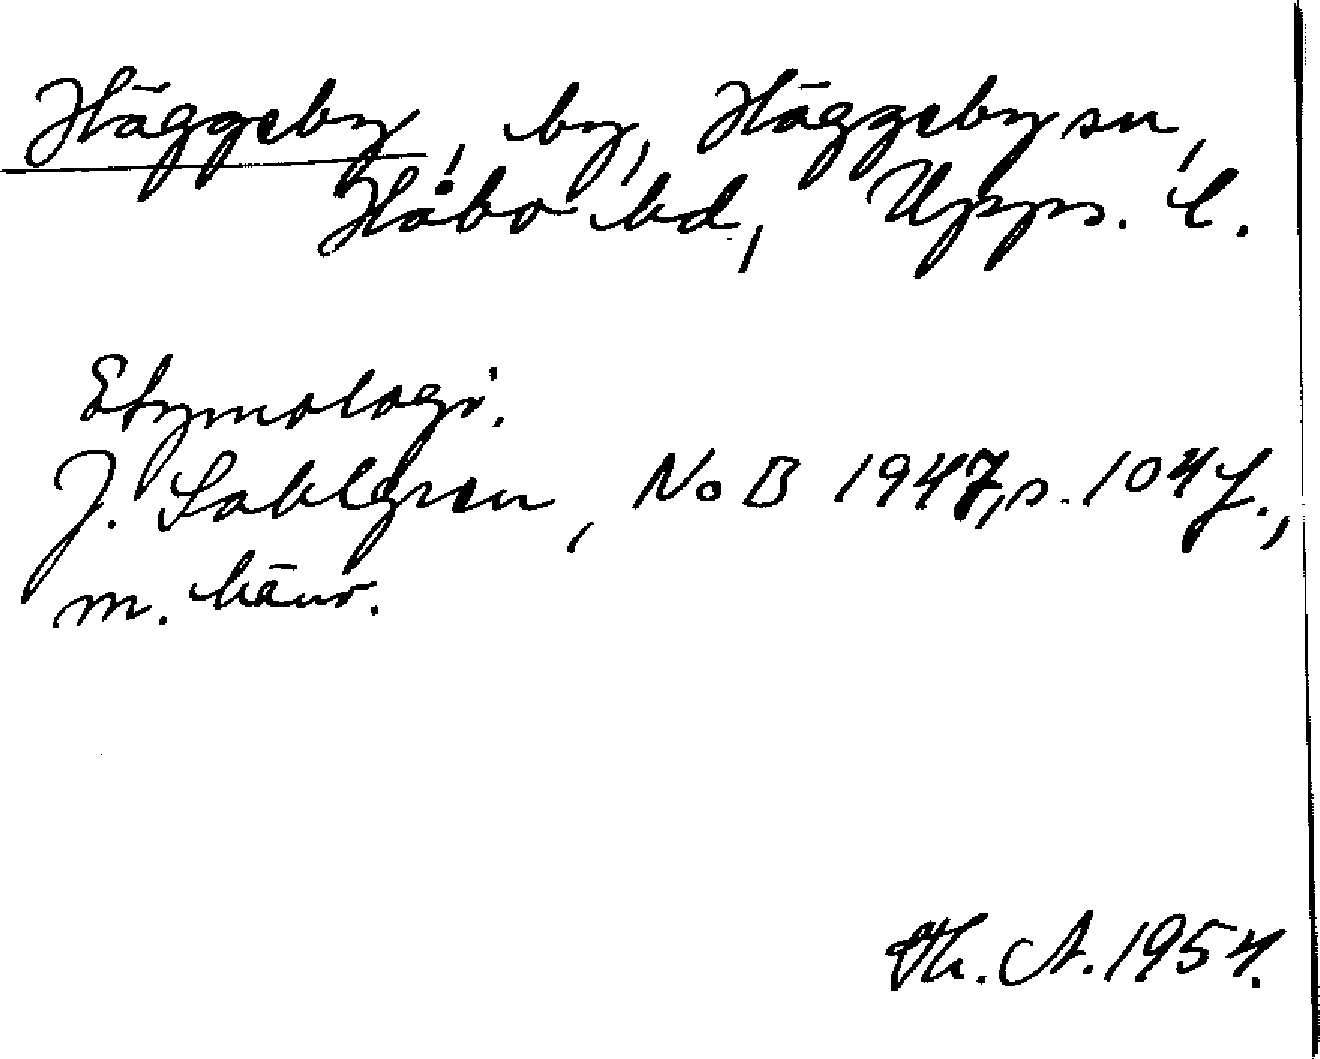 Häggeby, by, Häggeby sn,
Håbo hd, Upps. l.
Etymologi.
J. Sahlgren, NoB 1947, s. 104 f.,
m. hänv.
Th. A. 1954.